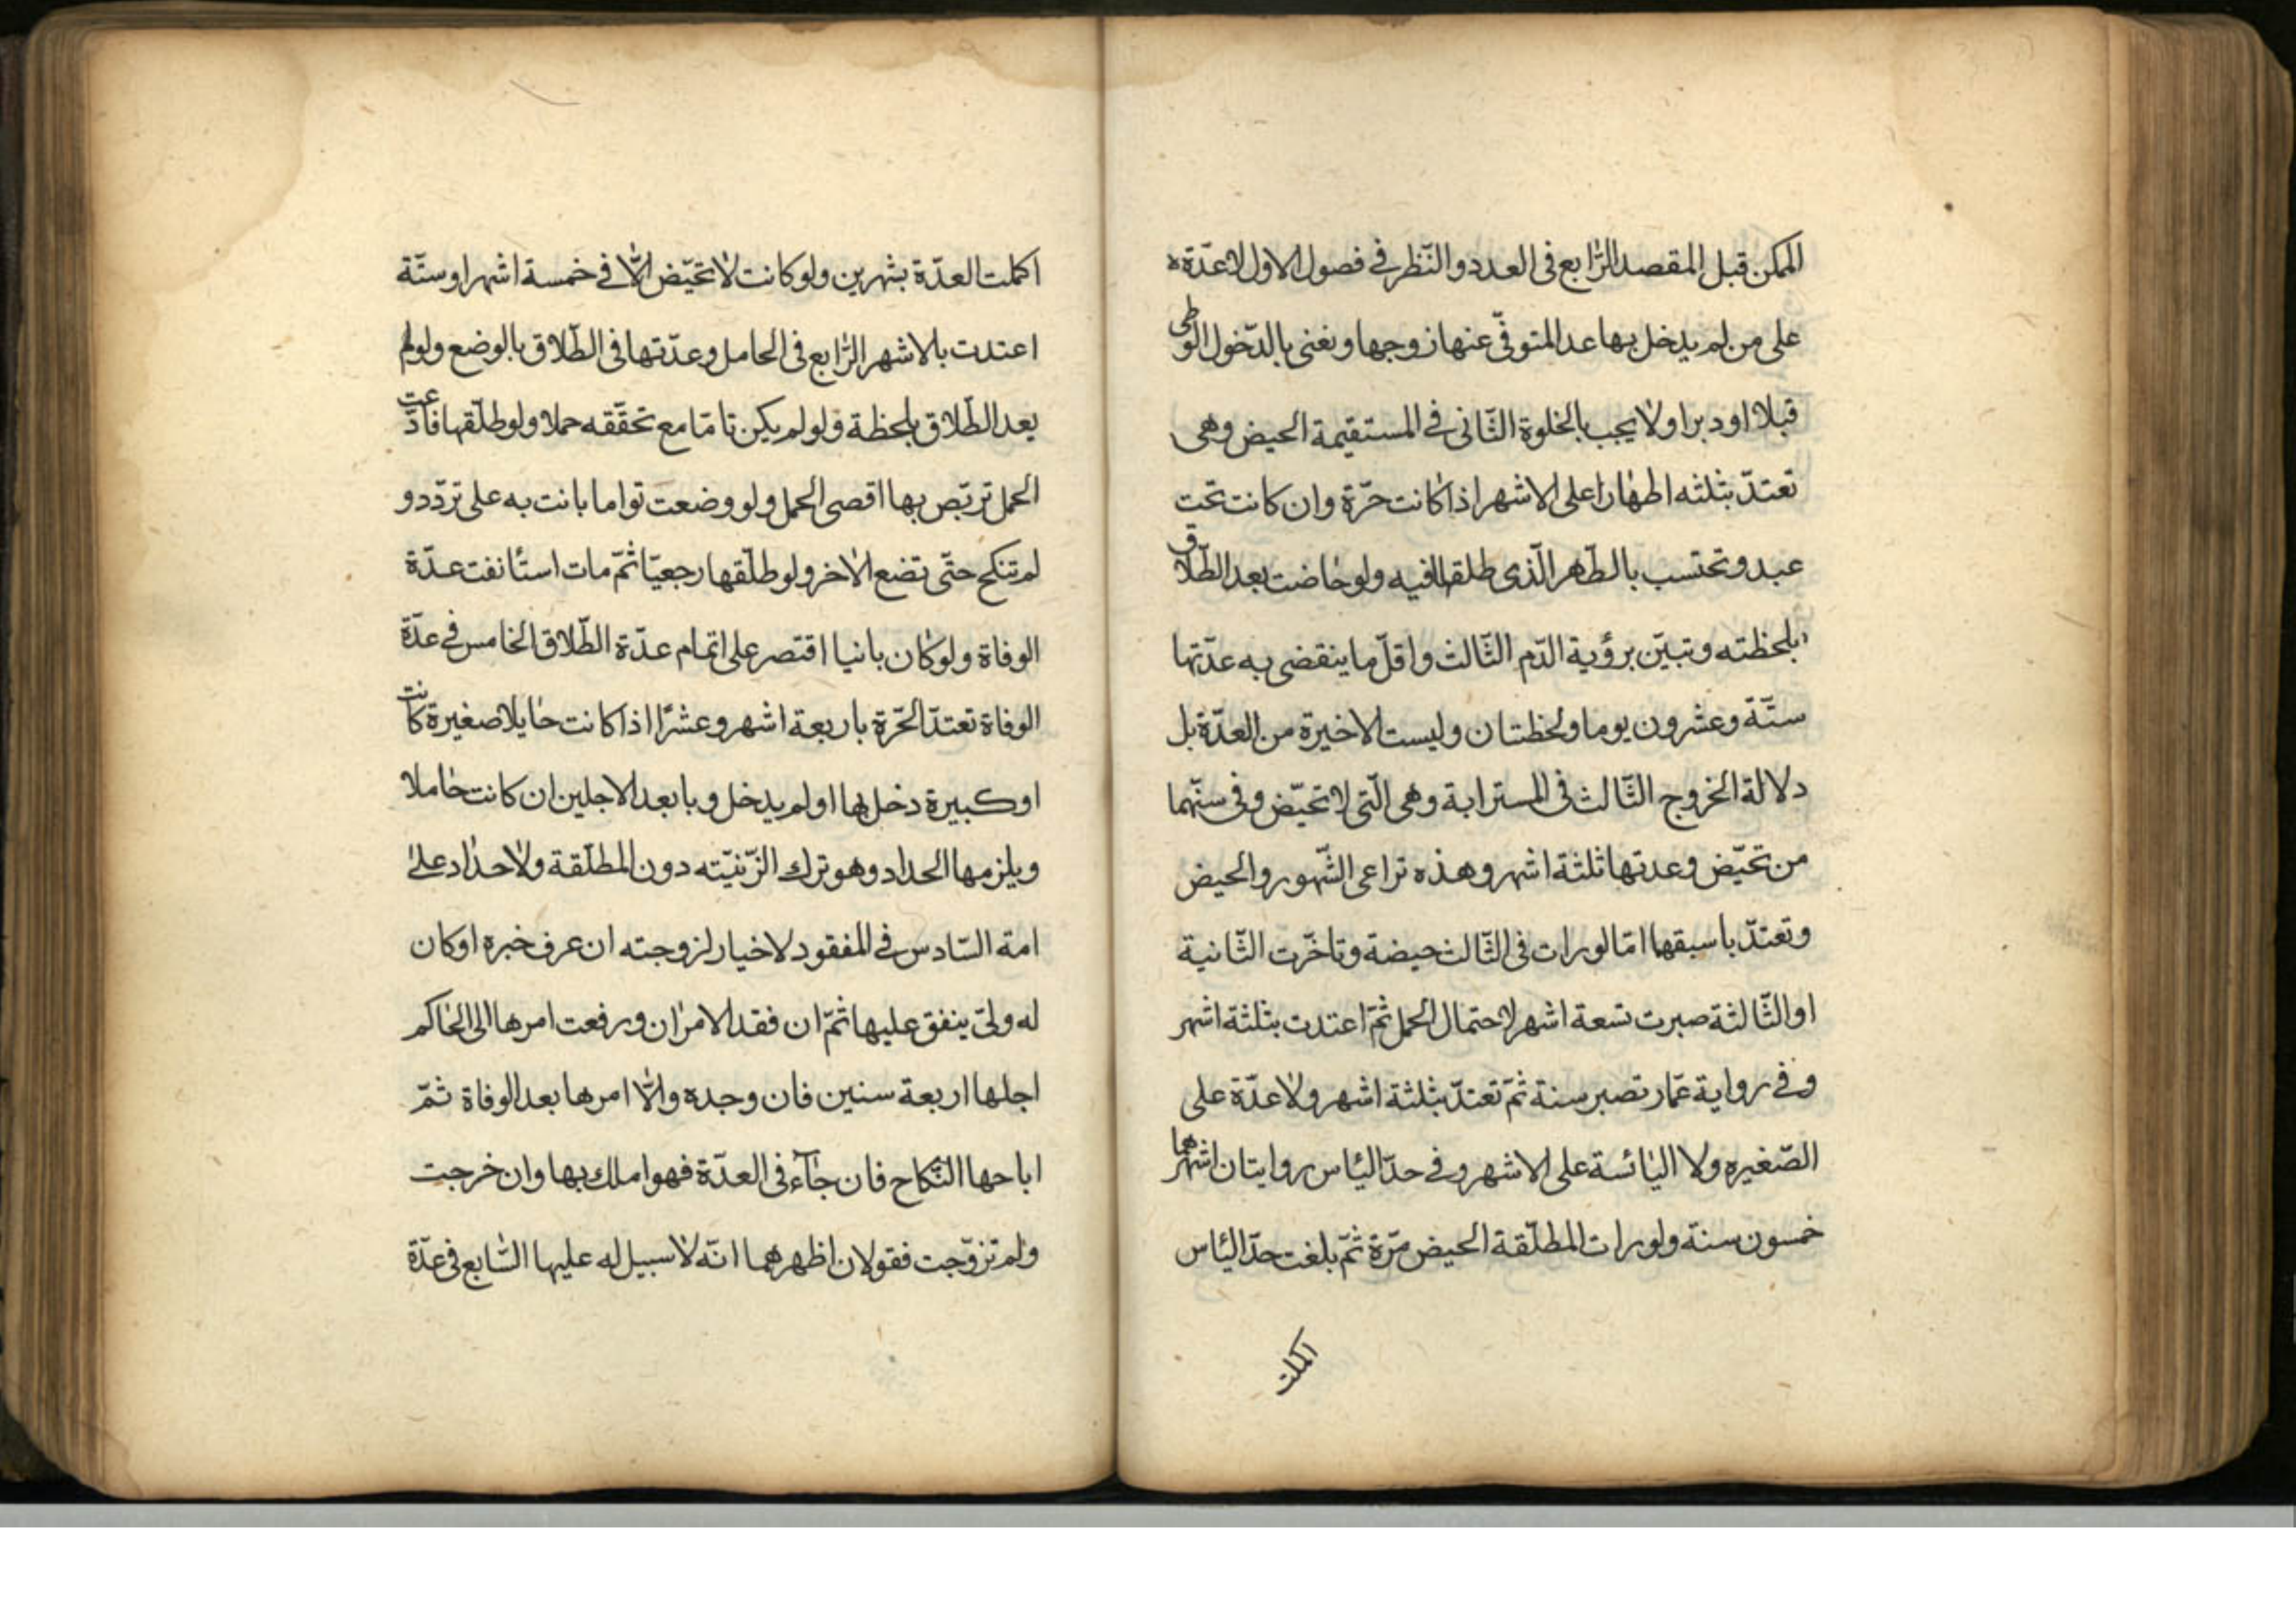 الممكن قبل المقصد الرّابع فى العدد والنّظر فى فصول الاول لا عدّة
على من لم يدخل بها عد المتوفّى عنها زوجها ونعنى بالدّخول الوطى
قبلا او دبرا ولا يجب بالخلوة الثّانى فى المستقيمة الحيض وهى
تعتدّ بثلثه اطهارا على الاشهر اذا كانت حرّة وان كانت تحت
عبد وتحتسب بالطّهر الّذى طلقها فيه ولو حاضت بعد الطّلاق
بلحظته وتبيّن برؤية الدّم الثّالث واقلّ ما ينقضى به عدّتها
ستّة وعشرون يوما ولحظتان وليست الاخيرة من العدّة بل
دلالة الخروج الثّالث فى المسترابة وهى الّتى لا تحيّض وفى سنّهما
من تحيّض وعدتها ثلثة اشهر وهذه تراعى الشّهور والحيض
وتعتدّ باسبقها امّا لو رات فى الثّالث حيضة وتاخّرت الثّانية
او الثّالثة صبرت تسعة اشهر لاحتمال الحمل ثمّ اعتدت بثلثة اشهر
وفى رواية عمّار تصبر سنة ثمّ تعتدّ بثلثة اشهر ولا عدّة على
الصّغيره ولا اليائسة على الاشهر وفى حدّ اليئاس روايتان اشهرهما
خمسون سنة ولو رات المطلّقة الحيض مرّة ثمّ بلغت حدّ اليئاس
اكملت
اكملت العدّة بشهرين ولو كانت لا تحيّض الّا فى خمسة اشهر او ستّة
اعتدت بالاشهر الرّابع فى الحامل وعدّتها فى الطّلاق بالوضع ولو لم
يعد الطّلاق بلحظة ولو لم يكن تامّا مع تحقّقه حملا ولو طلّقها فادّعت
الحمل تربّص بها اقصى الحمل ولو وضعت تواما بانت به على تردّد و
لم تنكح حتّى تضع الاخر ولو طلّقها رجعيّا ثمّ مات استأنفت عدّة
الوفاة ولو كان بانيا اقتصر على اتمام عدّة الطّلاق الخامس فى عدّة
الوفاة تعتدّ الحّرة باربعة اشهر وعشرًا اذا كانت حايلا صغيرة كانت
او كبيرة دخل بها او لم يدخل وبابعد الاجلين ان كانت حاملا
ويلزمها الحداد وهو ترك الزّنيّته دون المطلّقة ولا حداد على
امة السّادس فى المفقود لا خيار لزوجته ان عرف خبره او كان
له ولىّ ينفق عليها ثمّ ان فقد الامران ورفعت امرها الى الحاكم
اجلها اربعة سنين فان وجده والّا امرها بعد الوفاة ثمّ
اباحها النّكاح فان جآء فى العدّة فهو املك بها وان خرجت
ولم تزوّجت فقولان اظهرهما انّه لا سبيل له عليها السّابع فى عدّة